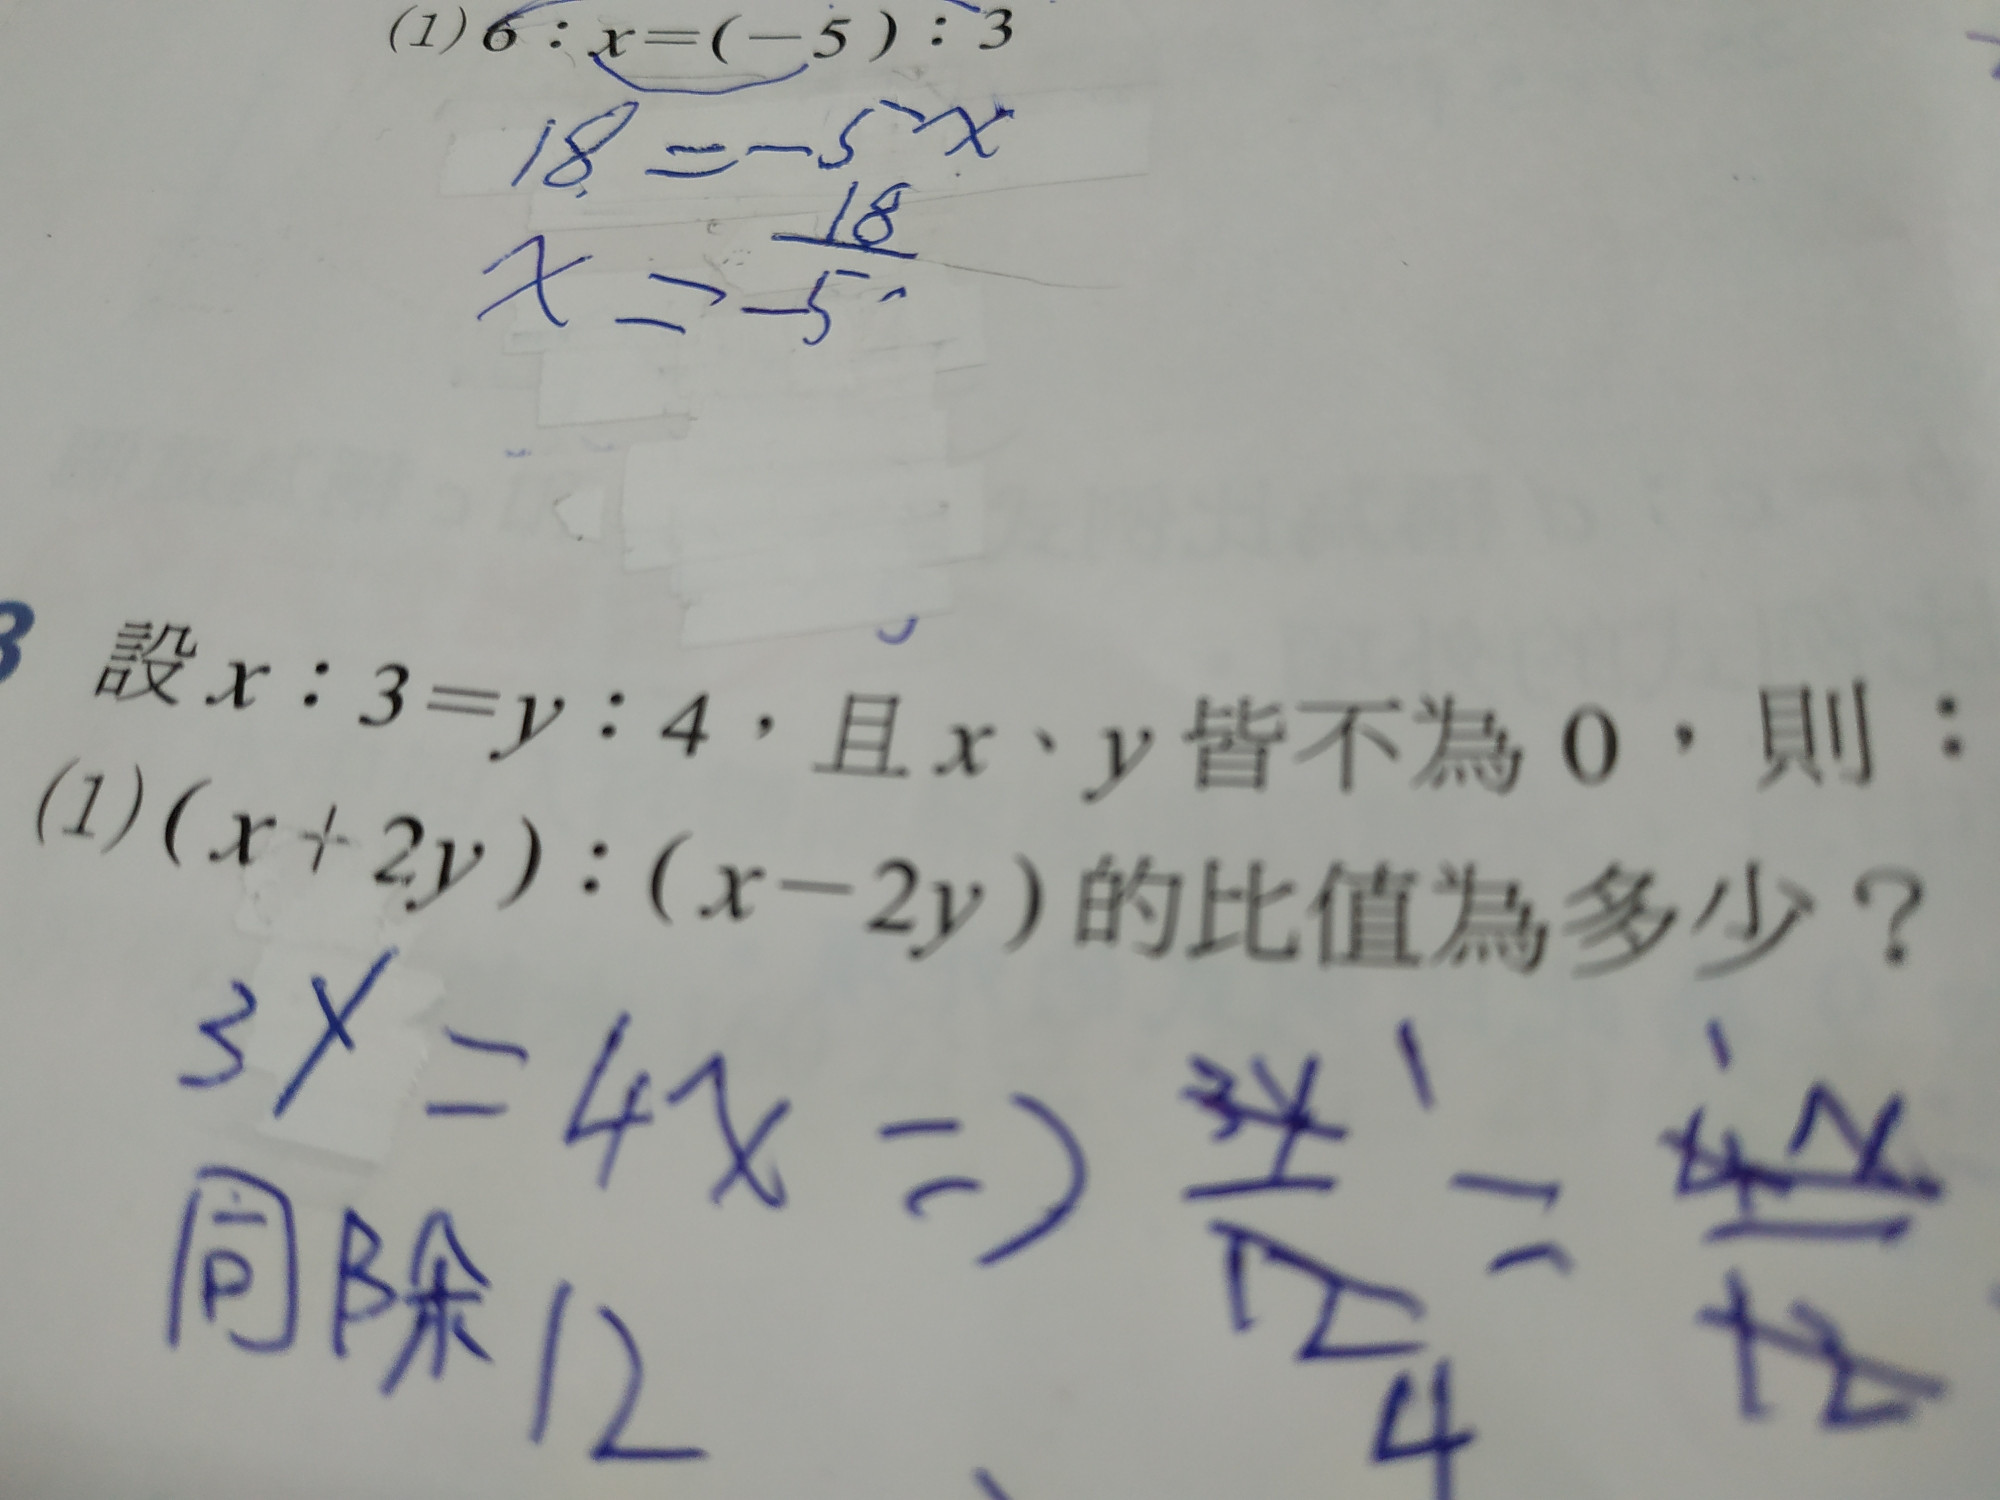 (1) 6：x=(-5)：3
18=-5x
x=18/-5
3 設 x：3=y：4，且 x、y 皆不為 0，則：
(1) (x+2y)：(x-2y) 的比值為多少？
3y=4x => 3y/12 = 4x/12
1 1
同除12
4